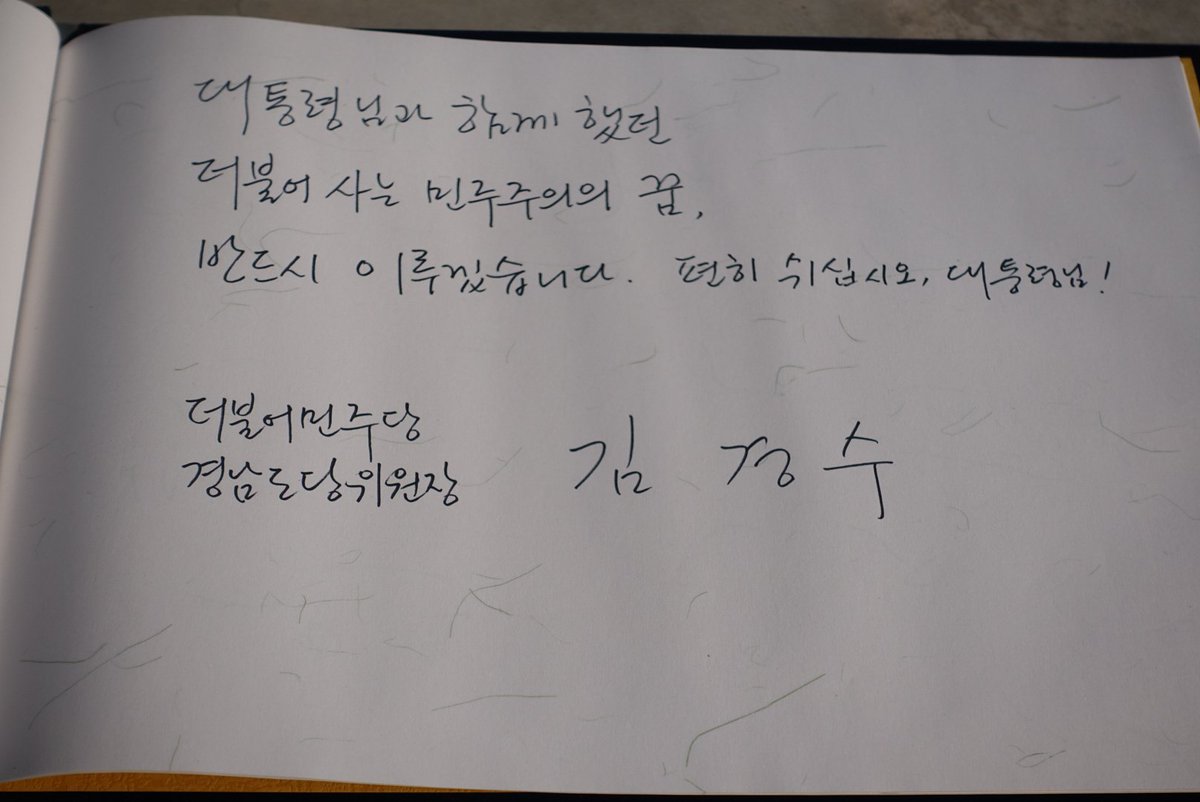 대통령님과 함께 했던
더불어 사는 민주주의의 꿈,
반드시 이루겠습니다. 편히 쉬십시오, 대통령님!
더불어민주당
경남도당위원장 김 경 수